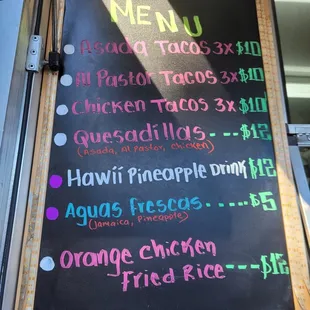 MENU
Asada Tacos 3x $10
Al Pastor Tacos 3x $10
Chicken Tacos 3x $10
Quesadillas ---- $12
(Asada, Al Pastor, Chicken)
Hawíí Pineapple Drink $12
Aguas frescas --- $5
(Jamaica, Pineapple)
Orange chicken
Fried Rice --- $12